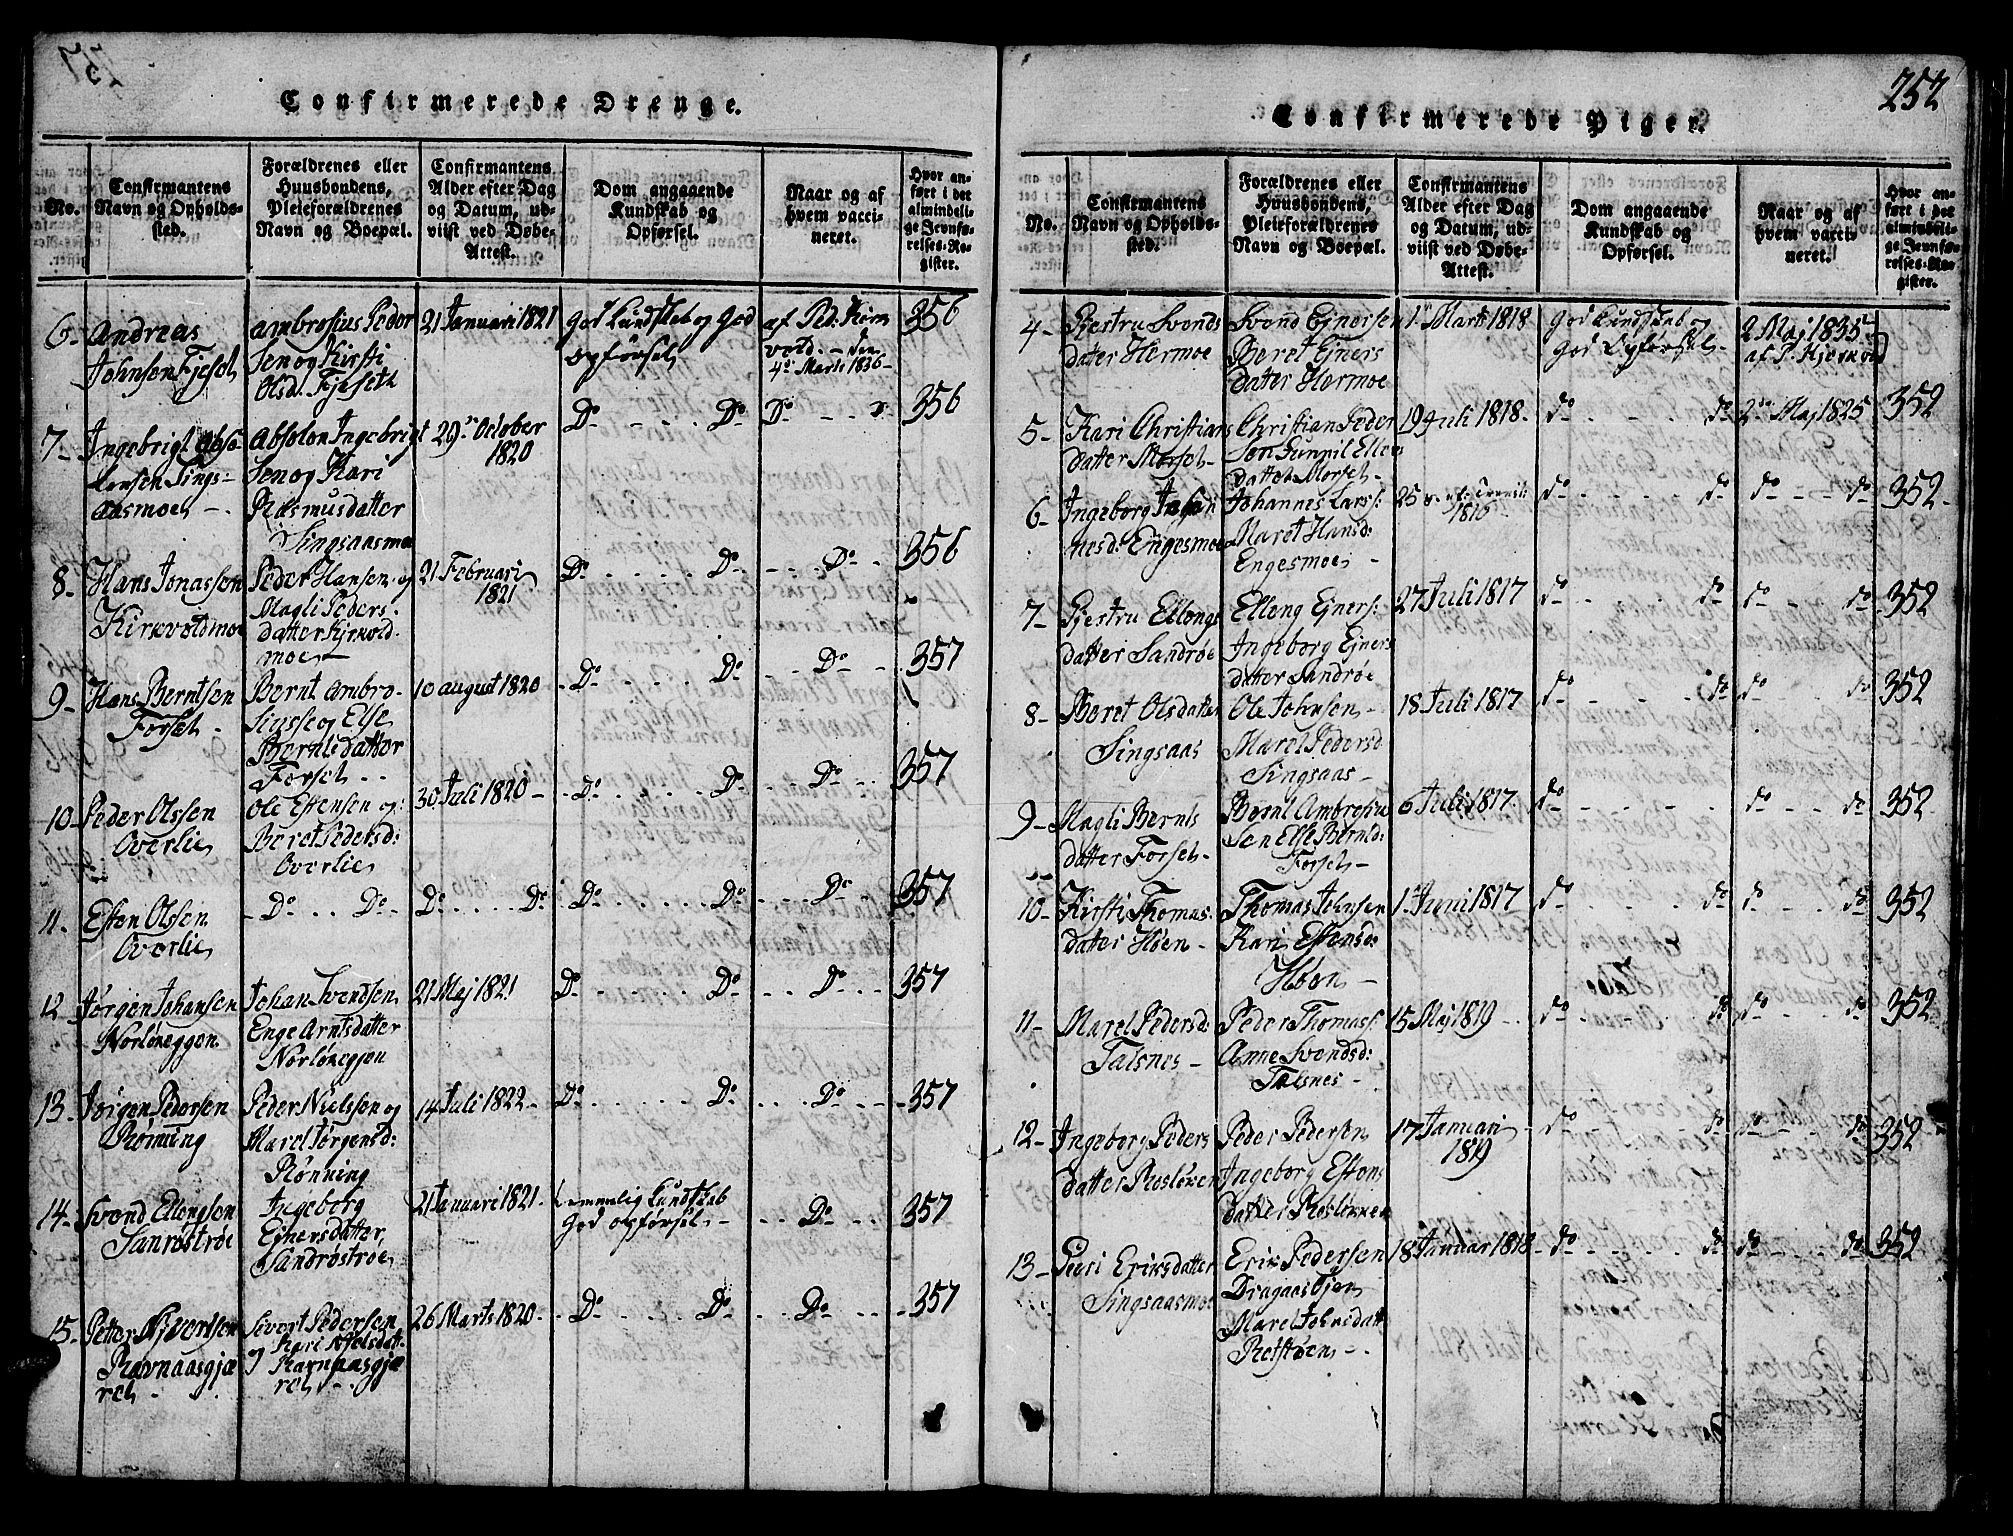 Confirmerede Drenge.
No.
Confirmantens
Navn og Opholds-
sted.
Forældrenes eller
Huusbondens,
Pleieforældrenes
Navn og Boepæl.
Confirmantens
Alder efter Dag
og Datum, ud-
viist ved Døbe-
Attest.
Dom angaaende
Kundskab og
Opførsel.
Naar og af
hvem vacci-
neret.
Hvor an-
ført i det
almindeli-
ge Jevnfø-
relses-Re-
gister.
6-
Andreas
Johnsen Fjeset
Ambrosius Peder
Sen og Kirsti
Olsd. Fjeseth
21 Januari 1821
God Kundskab og God
opførsel
af Pd: Kirk
vold. - den
4de Marti 1836-
356
7-
Ingebrigt Abso-
lonsen Sings-
aasmoe -
Absolon Ingebrigt
Sen og Kari
Rasmusdatter
Singsaasmoe
29de October
1820
Do Do
Do Do
356
8-
Hans Jonassen
Kirkvoldmoe
Peder Hansen og
Magli Peders-
datter Kirkvold
moe -
21 Februari
1821
Do Do
Do
356
9-
Hans Berntsen
Forset -
Bernt Ambro-
siusse og Else
Berntsdatter
Forset
10 August 1820
Do Do
Do
357
10
Peder Olssen
Overlie
Ole Estensen og
Beret Pedersd:
Overlie
30 Juli 1820 -
Do Do
Do
357
11.
Esten Olssen
Overlie
Do Do
Do Do
Do Do
Do
357
12
Jørgen Johansen
Norløneggen
Johan Svendsen
Enge Arntsdatter
Norløneggen
21 Maj 1821
Do Do
Do
357
13-
Jørgen Pedersen
Rønning
Peder Nielssen og
Maret Jørgensd:
Rønning
14 Juli 1822 -
Do Do
Do
357
14-
Svend Ellengsen
Sanrøstrøe
Ingeborg
Ejnersdatter
Sandrøstroe
21 Januari 1821-
temmelig Kundskab
God opførsel
Do
357
15-
Petter Sivertsen
Ravnaasgjæ
ret -
Sivert Pedersen
og Kari Nielsdat
Ravnaasgjæ
ret -
26 Marts 1820-
Do Do
Do
357
252
Confirmerede Piger.
No.
Confirmantens
Navn og Opholds-
sted.
Forældrenes eller
Huusbondens,
Pleieforældrenes
Navn og Boepæl.
Confirmantens
Alder efter Dag
og Datum, ud-
viist ved Døbe-
Attest.
Dom angaaende
Kundskab og
Opførsel.
Naar og af
hvem vacci-
neret.
Hvor an-
ført i det
almindeli-
ge Jevnfø-
relses-Re-
gister.
4-
Gjertru Svends
datter Hermoe
Svend Ejnersen
Beret Ejners
datter Hermoe
1 Marti 1818
God Kundskab og
God Opførsel -
2 Maj 1835
af P. Kjerkvold
352
5-
Kari Christians
datter Morset -
Christian Peder
sen Gunnil Ellens
datter Morset -
19 Juli 1818-
do do
2 Maj 1825
352
6-
Ingeborg Johan
nesd: Engesmoe
Johannes Larss:
Maret Hansd:
Engesmoe -
do do
do do
352
7-
Gjertru Ellengs
datter Sandrøe
Elleng Ejners:
Ingeborg Ejners
datter Sandrøe
27 Juli 1817
do do
do do
352
8-
Beret Olsdatter
Singsaas
Ole Johnsen -
Maret Pedersd
Singsaas -
18 Juli 1817
do do
do do
352
9-
Magli Bernts
datter Forset -
Bernt Ambrosiu
sen Else Berntd:
Forset -
6 Juli 1817
do
do do
352
10-
Kirsti Thomas-
datter Høen -
Thomas Johnsen
Kari Estensd:
Høen -
1 Juni 1817
do do
do do
352
11-
Maret Pedersd:
Talsnes -
Peder Thomass:
Anne Svendsd:
Talsnes -
15 Maj 1819
do do
do do
352
12-
Ingeborg Peders
datter Rosløkken
Peder Pedersen
Ingeborg Estens
datter Rosløkken
17 Januari
1819
do do
do do
352
13-
Guri Eriksdatter
Singsaasmoe
Erik Pedersen
Dragaas
Maret Johnsdatt
18 Januar 1818-
do do
do do
352